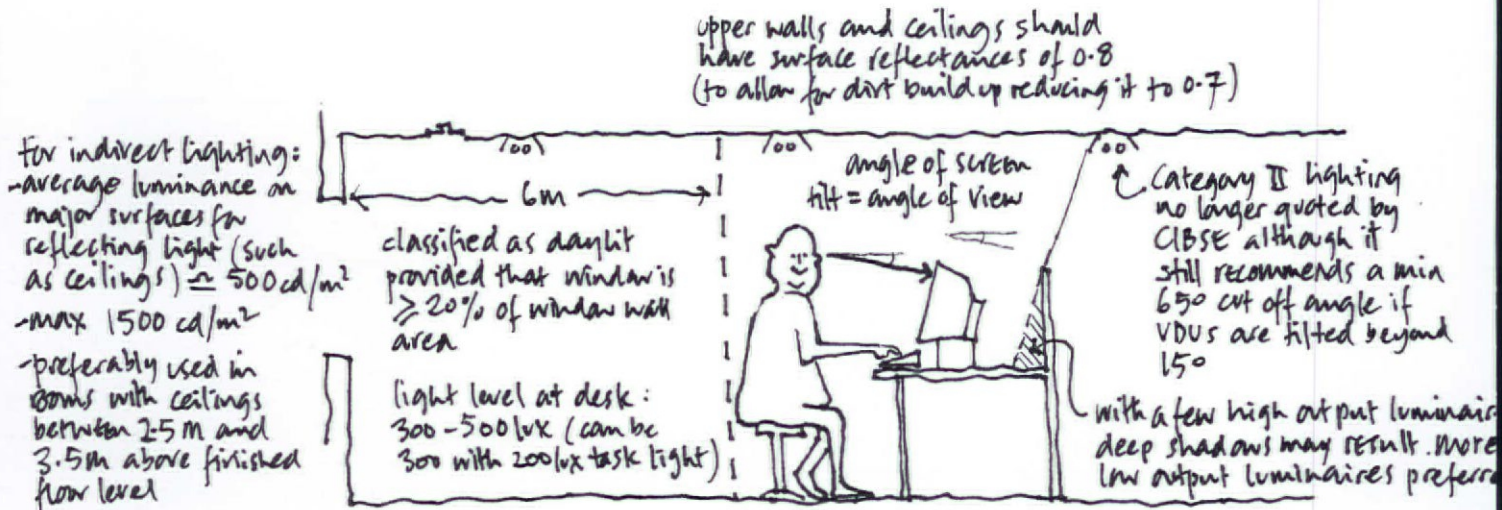 upper walls and ceilings should
have surface reflectances of 0.8
(to allow for dirt build up reducing it to 0.7)
For indirect lighting:
-average luminance on
major surfaces for
reflecting light (such
as ceilings) ≏ 500cd/m²
-max 1500 cd/m²
-preferably used in
rooms with ceilings
between 2.5m and
3.5m above finished
floor level
6m
classified as daylit
provided that window is
⩾ 20% of window wall
area
light level at desk:
300-500lux (can be
300 with 200lux task light)
angle of screen
tilt = angle of view
Category II lighting
no longer quoted by
CIBSE although it
still recommends a min
65° cut off angle if
VDUs are tilted beyond
15°
with a few high output luminair
deep shadows may result. More
low output luminaires preferre